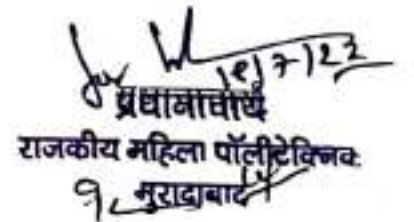 प्रधानाचार्य
राजकीय महिला पॉलीटेक्निक
मुरादाबाद